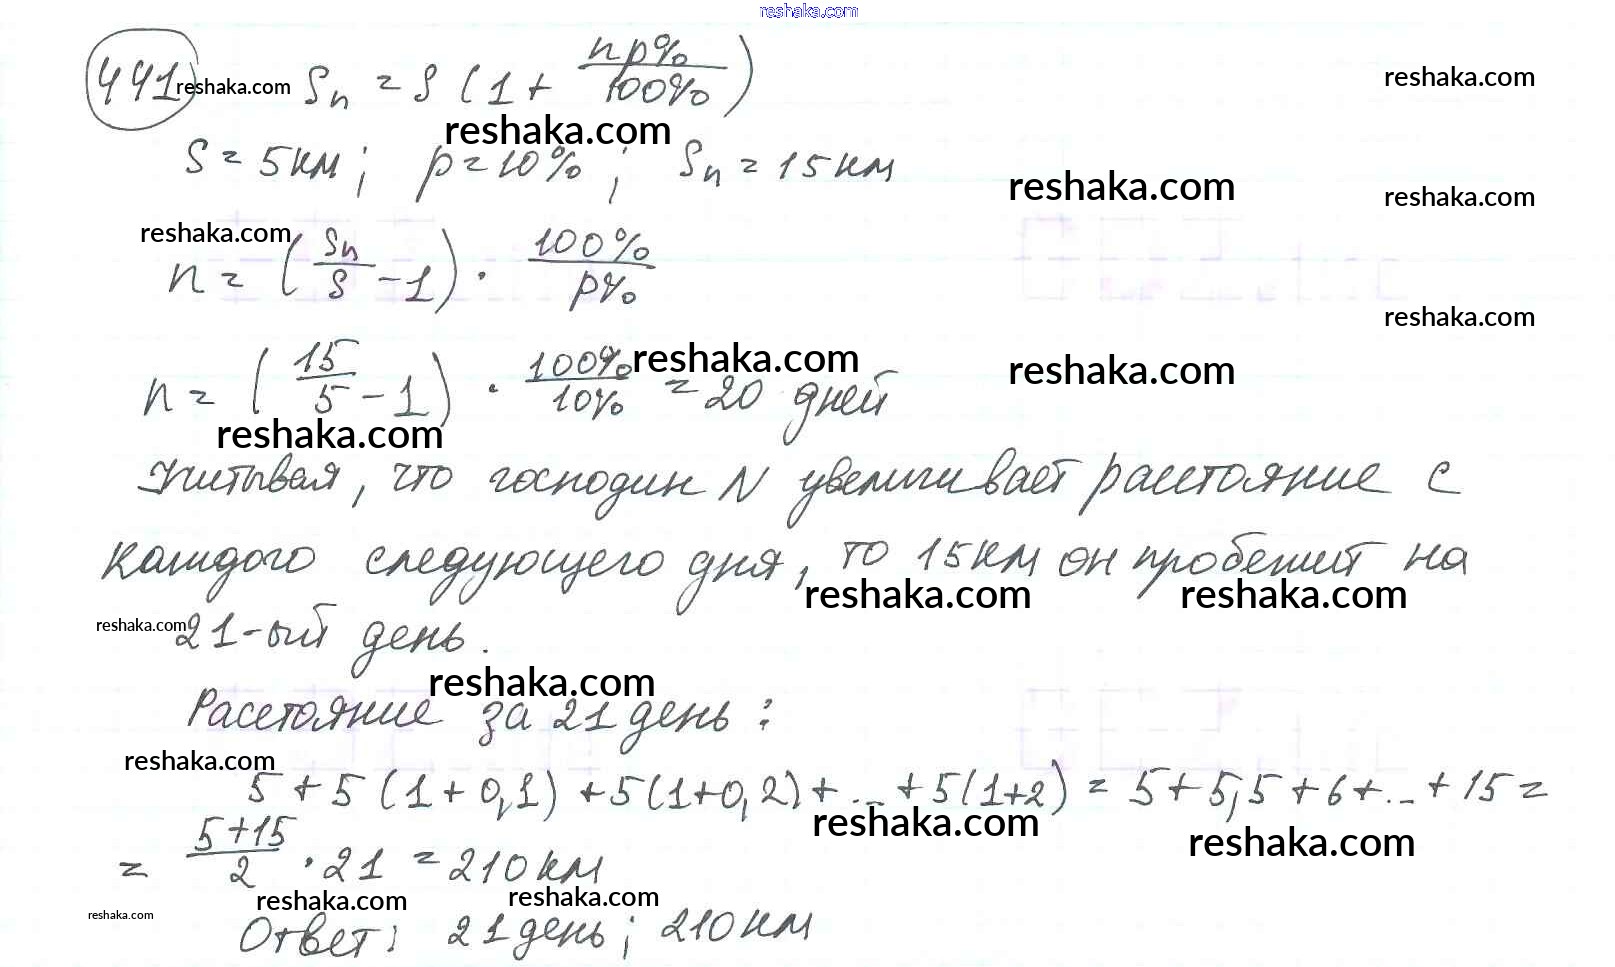 reshaka.com
441 reshaka.com Sn = S (1 + np%/100%) reshaka.com
reshaka.com
S = 5км; p = 10%; Sn = 15км reshaka.com reshaka.com
reshaka.com
n = (Sn/S - 1) · 100%/p%
reshaka.com
n = (15/5 - 1) · 100%/10% = 20 дней reshaka.com reshaka.com
reshaka.com
Учитывая, что господин N увеличивает расстояние с
каждого следующего дня, то 15км он пробежит на
reshaka.com reshaka.com
reshaka.com 21-ый день.
reshaka.com
Расстояние за 21 день:
reshaka.com
5 + 5 (1 + 0,1) + 5(1+0,2) + ... + 5(1+2) = 5 + 5,5 + 6 + ... + 15 =
reshaka.com reshaka.com
= 5+15/2 · 21 = 210км
reshaka.com reshaka.com
reshaka.com
Ответ: 21 день; 210км